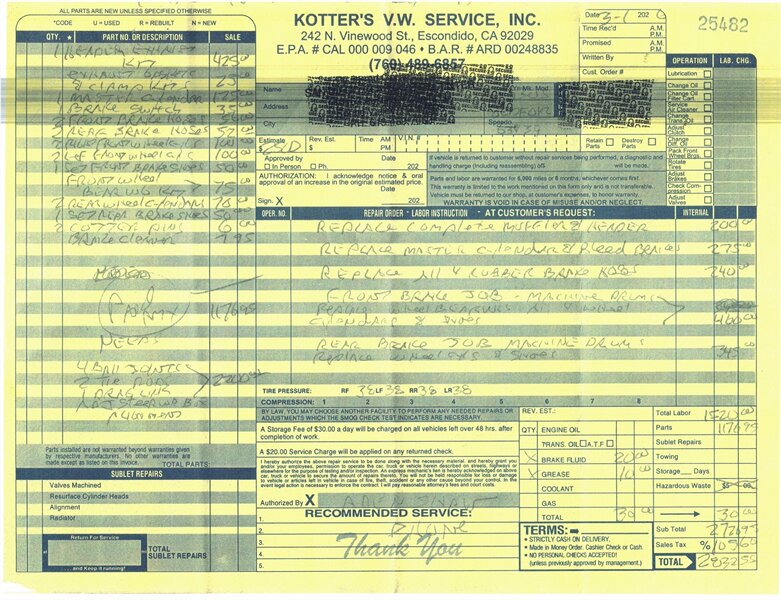 ALL PARTS ARE NEW UNLESS SPECIFIED OTHERWISE
*CODE U = USED R = REBUILT N = NEW
KOTTER'S V.W. SERVICE, INC.
242 N. Vinewood St., Escondido, CA 92029
E.P.A. # CAL 000 009 046 • B.A.R. # ARD 00248835
(760) 489-6857
Date 3-1 202
25482
Time Rec'd A.M. P.M.
Promised A.M. P.M.
Written By
Cust. Order #
QTY. * PART NO. OR DESCRIPTION SALE
1 HEADER EXHAUST
KIT 425 00
EXHAUST GASKETS
& CLAMP KITS 25 00
1 MASTER
1 BRAKE SWITCH 35 00
2 FRONT BRAKE HOSES 56 00
2 REAR BRAKE HOSES 52 00
100 00
100 00
1 SET FRONT BRAKE SHOES 50 00
FRONT WHEEL
BEARING KIT 75 00
2 REAR WHEEL CYLINDERS 70 00
1 SET REAR BRAKE SHOES 50 00
2 COTTER PINS 6 00
BRAKE CLEANER 7 95
1176 95
NEEDS
4 BALL JOINTS
2 TIE RODS
1 DRAG LINK
2200 00
Name
Address
City
Yr.-Mk. Mod.
Speedo.
V.I.N. #
Estimate
$
Rev. Est.
$
Time AM PM
Approved by
In Person Ph.
Date 202
AUTHORIZATION: I acknowledge notice & oral approval of an increase in the original estimated price.
Date
Sign. X 202
Retain Parts Destroy Parts
If vehicle is returned to customer without repair services being performed, a diagnostic and handling charge (including reassembling) of $
Parts and labor are warranted for 6,000 miles or 6 months, whichever comes first.
This warranty is limited to the work mentioned on this form only and is not transferable.
Vehicle must be returned to our shop, at customer's expense, to honor warranty.
WARRANTY IS VOID IN CASE OF MISUSE AND/OR NEGLECT.
OPERATION LAB. CHG.
Lubrication
Change Oil
Change Oil Filter Cart.
Service Air Cleaner
Change Trans. Oil
Adjust Clutch
Change Diff. Oil
Pack Front Wheel Brgs.
Rotate Tires
Adjust Brakes
Check Compression
Adjust Valves
OPER. NO. REPAIR ORDER - LABOR INSTRUCTION - AT CUSTOMER'S REQUEST: INTERNAL
REPLACE COMPLETE MUFFLER & HEADER 200 00
REPLACE MASTER CYLENDUR & Bleed BRAKES 275 00
REPLACE All 4 RUBBER BRAKE HOSES 240 00
FRONT BRAKE JOB - MACHINE DRUMS
460 00
REAR BRAKE JOB MACHINE DRUMS
Replace wheel cyls & shoes 345 00
TIRE PRESSURE: RF 38 LF 38 RR 38 LR 38
COMPRESSION: 1 2 3 4 5 6 7 8
BY LAW, YOU MAY CHOOSE ANOTHER FACILITY TO PERFORM ANY NEEDED REPAIRS OR ADJUSTMENTS WHICH THE SMOG CHECK TEST INDICATES ARE NECESSARY.
A Storage Fee of $30.00 a day will be charged on all vehicles left over 48 hrs. after completion of work.
A $20.00 Service Charge will be applied on any returned check.
I hereby authorize the above repair service to be done along with the necessary material, and hereby grant you and/or your employees, permission to operate the car, truck or vehicle herein described on streets, highways or elsewhere for the purpose of testing and/or inspection. An express mechanic's lien is hereby acknowledged on above car, truck or vehicle to secure the amount of repairs thereto. You will not be held responsible for loss or damage to vehicle or articles left in vehicle in case of fire, theft, accident or any other cause beyond your control. In the event legal action is necessary to enforce the contract, I will pay reasonable attorney's fees and court costs.
Authorized By X
RECOMMENDED SERVICE:
1.
2. PHONE
3.
4.
5.
Thank You
Parts installed are not warranted beyond warranties given by respective manufacturers. No other warranties are made except as listed on this invoice.
TOTAL PARTS:
SUBLET REPAIRS
Valves Machined
Resurface Cylinder Heads
Alignment
Radiator
Return For Service
at
...and Keep it running!
TOTAL SUBLET REPAIRS
REV. EST.:
QTY. ENGINE OIL
TRANS. OIL A.T.F
X BRAKE FLUID 20 00
X GREASE 10 00
COOLANT
GAS
TOTAL 30 00
TERMS:
• STRICTLY CASH ON DELIVERY,
• Made in Money Order. Cashier Check or Cash.
• NO PERSONAL CHECKS ACCEPTED!
(unless previously approved by management.)
Total Labor 1520 00
Parts 1176 95
Sublet Repairs
Towing
Storage Days
Hazardous Waste
30 00
Sub Total 2726 95
Sales Tax % 105 60
TOTAL 2832 55